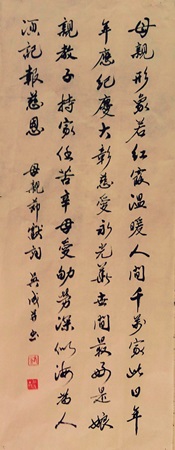 母親形象若紅霞溫暖人間千萬家此日年
年應紀慶大彰慈愛永光華世間最好是娘
親教子持家任苦辛母愛勤勞深似海為人
須記報慈恩 母親節獻詞 吳成 书